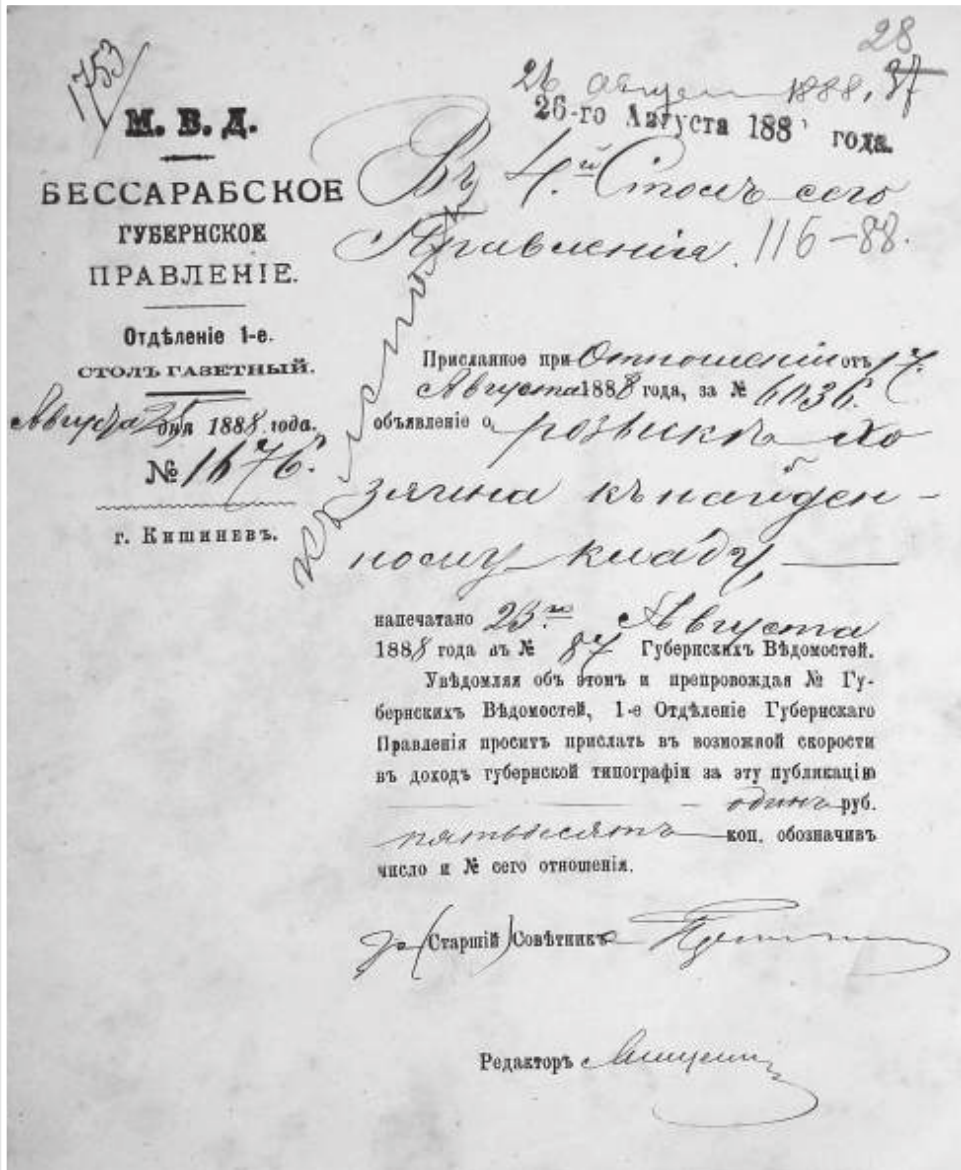 1753
28
37
26 Августа 1888,
26-го Августа 188 года.
М. В. Д.
БЕССАРАБСКОЕ
ГУБЕРНСКОЕ
ПРАВЛЕНІЕ.
Отдѣленіе 1-е.
СТОЛЪ ГАЗЕТНЫЙ.
Августа 25 дня 1888 года.
№ 1676.
г. Кишиневъ.
Въ 4й Столъ сего
Правленія. 116-88.
Присланное при Отношеніи отъ 17
Августа 1888 года, за № 6036.
объявленіе о розыскѣ хо
зяина къ найден-
ному кладу,
напечатано 23го Августа
1888 года въ № 87 Губернскихъ Вѣдомостей.
Увѣдомляя объ этомъ и препровождая № Гу-
бернскихъ Вѣдомостей, 1-е Отдѣленіе Губернскаго
Правленія проситъ прислать въ возможной скорости
въ доходъ губернской типографіи за эту публикацію
одинъ руб.
пятьдесятъ коп. обозначивъ
число и № сего отношенія.
За (Старшій) Совѣтника
Редакторъ